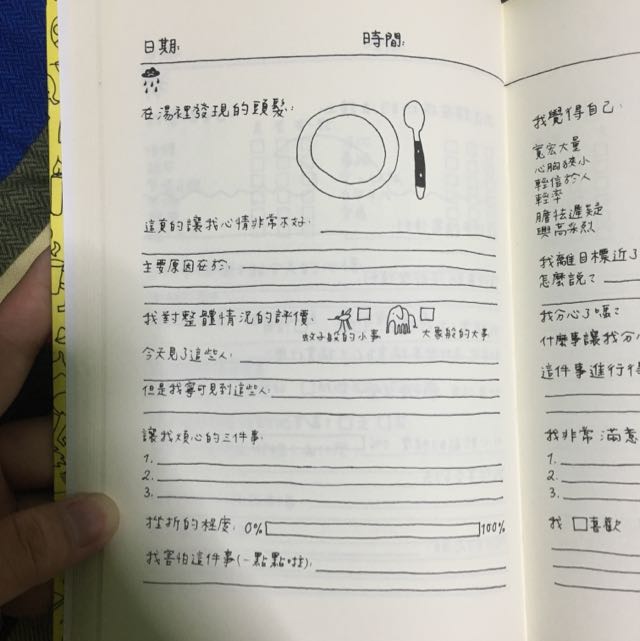 日期: 時間:
在湯裡發現的頭髮:
這真的讓我心情非常不好:
主要原因在於:
我對整體情況的評價:
蚊子般的小事 大象般的大事
今天見了這些人:
但是我寧可見到這些人:
讓我煩心的三件事:
1.
2.
3.
挫折的程度: 0% 100%
我害怕這件事(一點點啦):
我覺得自己:
寬宏大量
心胸狹小
輕信於人
輕率
膽怯遲疑
興高采烈
我離目標近了
怎麼說?
我分心了嗎?
什麼事讓我分心
這件事進行得
我非常滿意
1.
2.
3.
我 喜歡